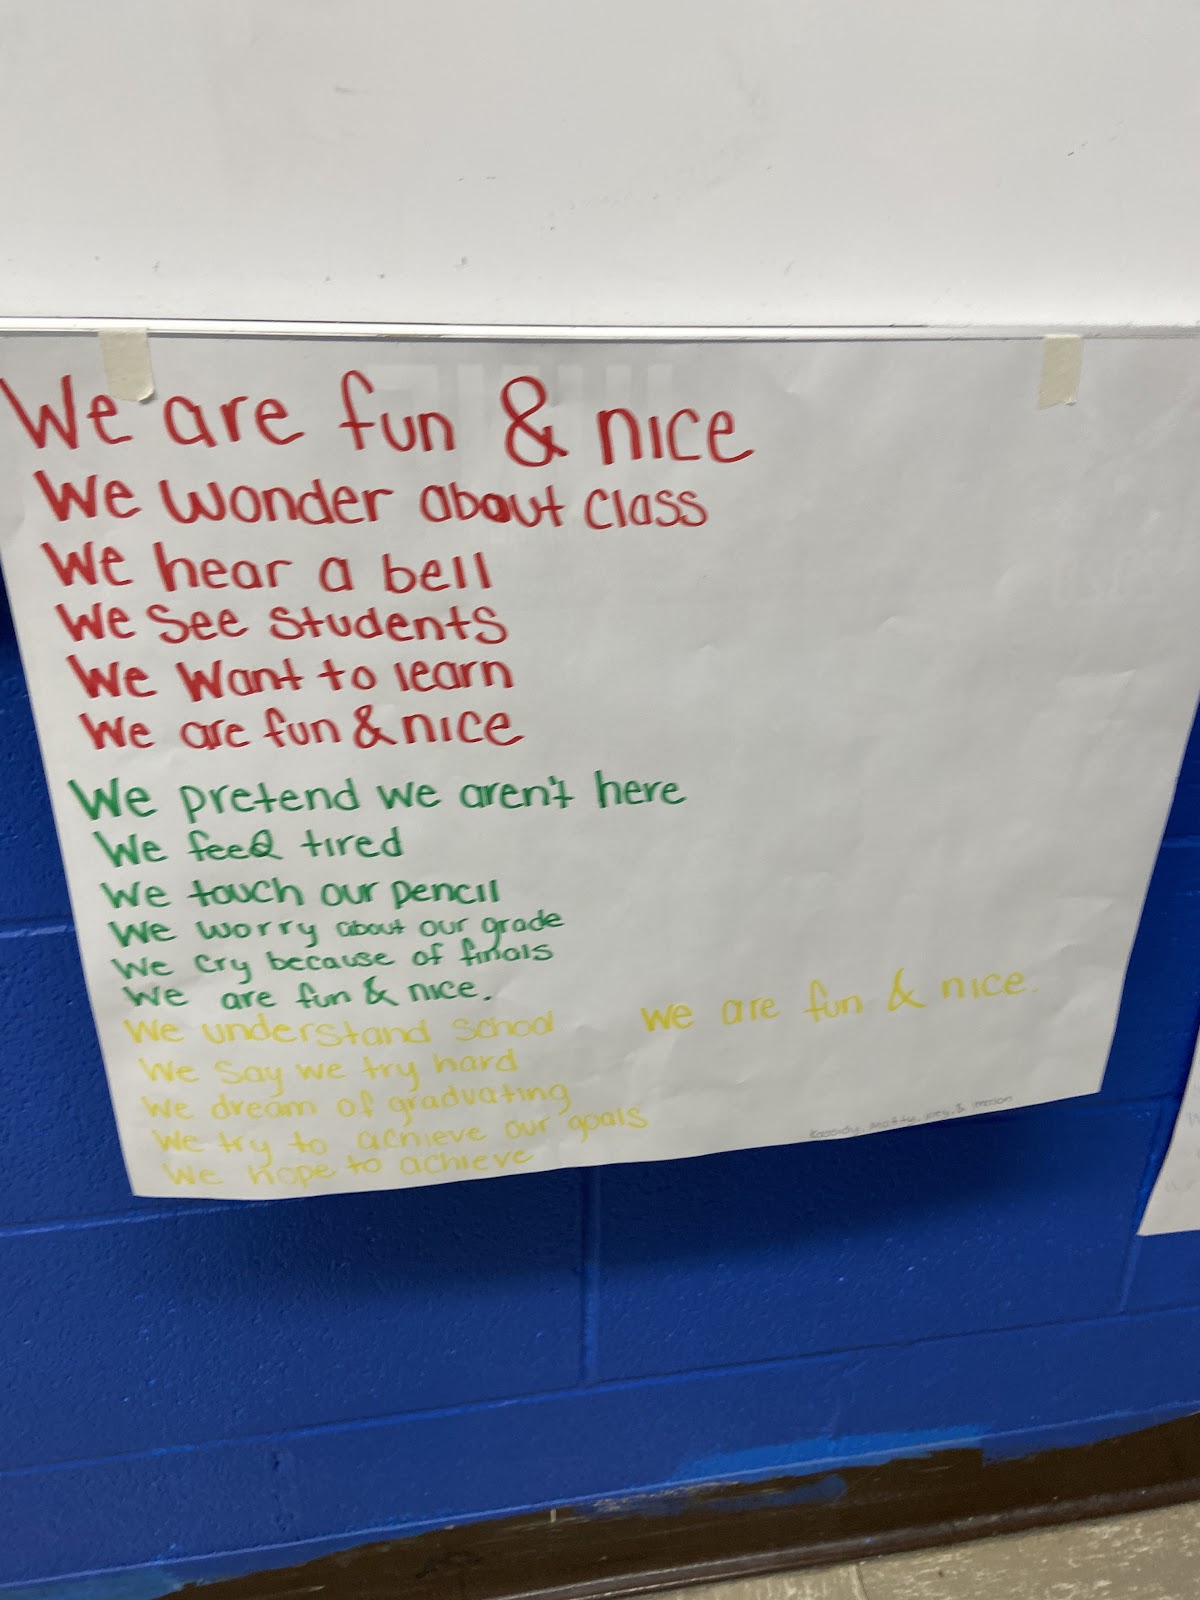 We are fun & nice
We wonder about class
We hear a bell
We see students
We want to learn
We are fun & nice
We pretend we aren't here
We feel tired
We touch our pencil
We worry about our grade
We cry because of finals
We are fun & nice.
We understand school
We say we try hard
We dream of graduating
We try to achieve our goals
We hope to achieve
we are fun & nice.
Kassidy, &